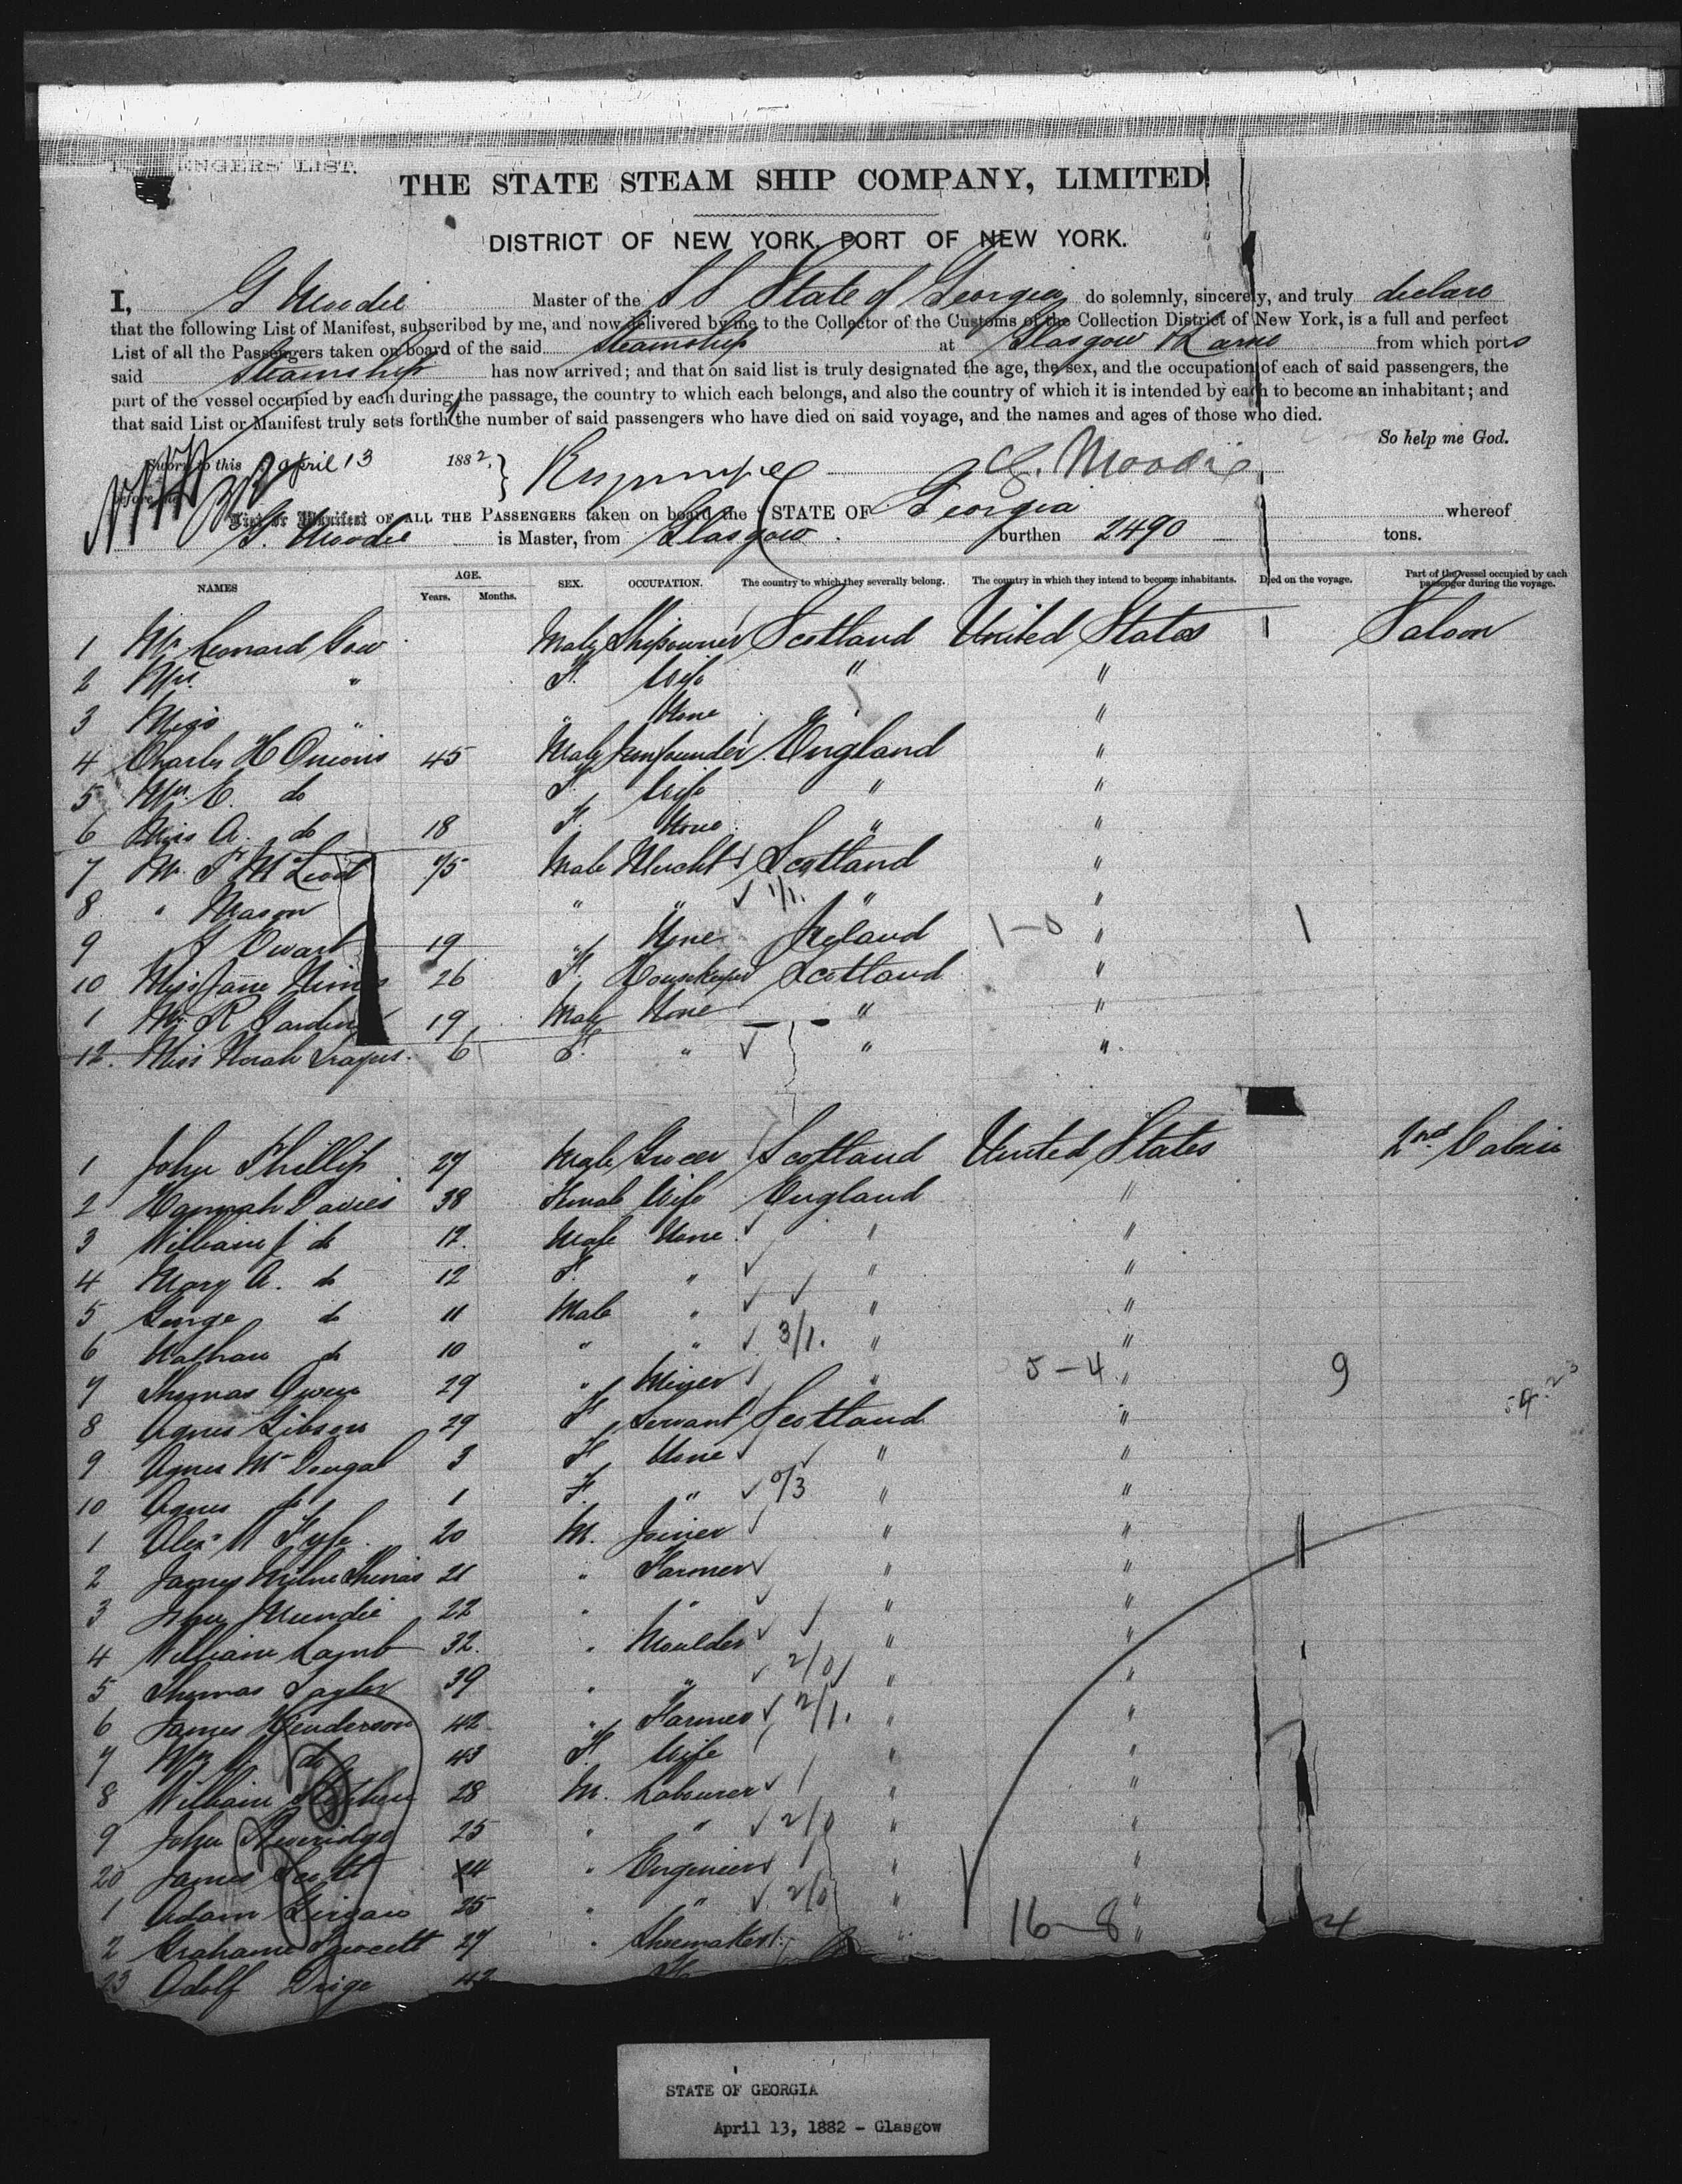 PASSENGERS' LIST.
THE STATE STEAM SHIP COMPANY, LIMITED
DISTRICT OF NEW YORK, PORT OF NEW YORK.
I, G Moodie Master of the S S State of Georgia do solemnly, sincerely, and truly declare
that the following List of Manifest, subscribed by me, and now delivered by me to the Collector of the Customs of the Collection District of New York, is a full and perfect
List of all the Passengers taken on board of the said Steamship at Glasgow & Larne from which ports
said Steamship has now arrived; and that on said list is truly designated the age, the sex, and the occupation of each of said passengers, the
part of the vessel occupied by each during the passage, the country to which each belongs, and also the country of which it is intended by each to become an inhabitant; and
that said List or Manifest truly sets forth the number of said passengers who have died on said voyage, and the names and ages of those who died.
So help me God.
Sworn to this April 13 1882, G. Moodie
before me
List or Manifest OF ALL THE PASSENGERS taken on board the STATE OF Georgia whereof
G. Moodie is Master, from Glasgow. burthen 2490 tons.
NAMES AGE. Years. Months. SEX. OCCUPATION. The country to which they severally belong. The country in which they intend to become inhabitants. Died on the voyage. Part of the vessel occupied by each passenger during the voyage.
1 Mr Leonard Gow Male Shipowner Scotland United States Saloon
2 Mrs " F. Wife " "
3 Miss " " None "
4 Charles H Onions 45 Male Ironfounder England "
5 Mrs E. do F. Wife " "
6 Miss A. do 18 F. None " "
7 Mr. McLeod 75 Male Mercht Scotland "
8 " Mason " " 1/1. " "
9 J Ewart 19 " None Ireland 1-0 " 1
10 Miss Jane 26 F. Housekeeper Scotland "
1 Mr R 19 Male None " "
12. Miss Norah 6 F. " " "
1 John Phillip 27 Male Grocer Scotland United States 2nd Cabin
2 Hannah Davies 38 Female Wife England "
3 William J do 12. Male None " "
4 Mary A. do 12 F. " " "
5 George do 11 Male " " "
6 Nathan do 10 " " 3/1. " "
7 Thomas Owen 29 " Miner " 5-4 " 9
8 Agnes Gibson 29 F Servant Scotland "
9 Agnes McDougal 3 F None " "
10 Agnes do 1 F. " 0/3 " "
1 Alex 20 M. Joiner " "
2 James Milne 21 " Farmer " "
3 John Mundie 22 " " " "
4 William Lamb 32. " Moulder " "
5 Thomas Taylor 39 " " 2/0 " "
6 James Henderson 42 " Farmer 2/1. " "
7 Mrs do 43 F. Wife " "
8 William 28 M. Labourer " "
9 John Beveridge 25 " " 2/0 " "
20 James Scott 24 " Engineer " "
1 Adam 25 " " 2/0 " "
2 Grahame Fawcett 27 " Shoemaker " 16-8 " 24
23 Adolf 42
STATE OF GEORGIA
April 13, 1882 - Glasgow